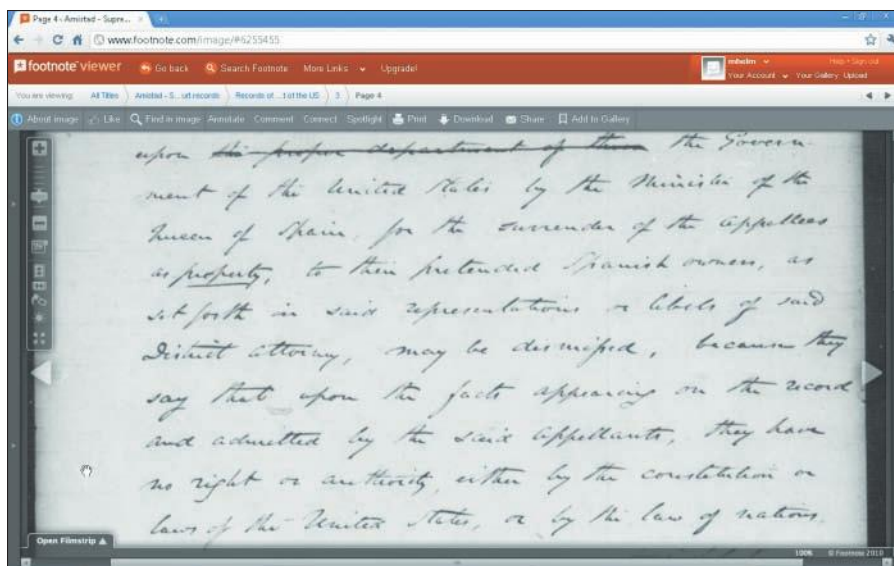 Page 4 - Amistad - Supre...
www.footnote.com/image/#6255455
footnote viewer Go back Search Footnote More Links Upgrade!
mholm Help Sign out
Your Account Your Gallery Upload
You are viewing: All Titles Amistad - S... urt records Records of ...t of the US 3 Page 4
About image Like Find in image Annotate Comment Connect Spotlight Print Download Share Add to Gallery
upon this proper department of the Govern-
ment of the United States by the Minister of the
Queen of Spain, for the surrender of the appellees
as property, to their pretended Spanish owners, as
set forth in said representations or libels of said
District Attorney, may be dismissed, because they
say that upon the facts appearing on the record
and admitted by the said appellants, they have
no right or authority, either by the constitution or
laws of the United States, or by the law of nations,
Open Filmstrip
100% © Footnote 2010